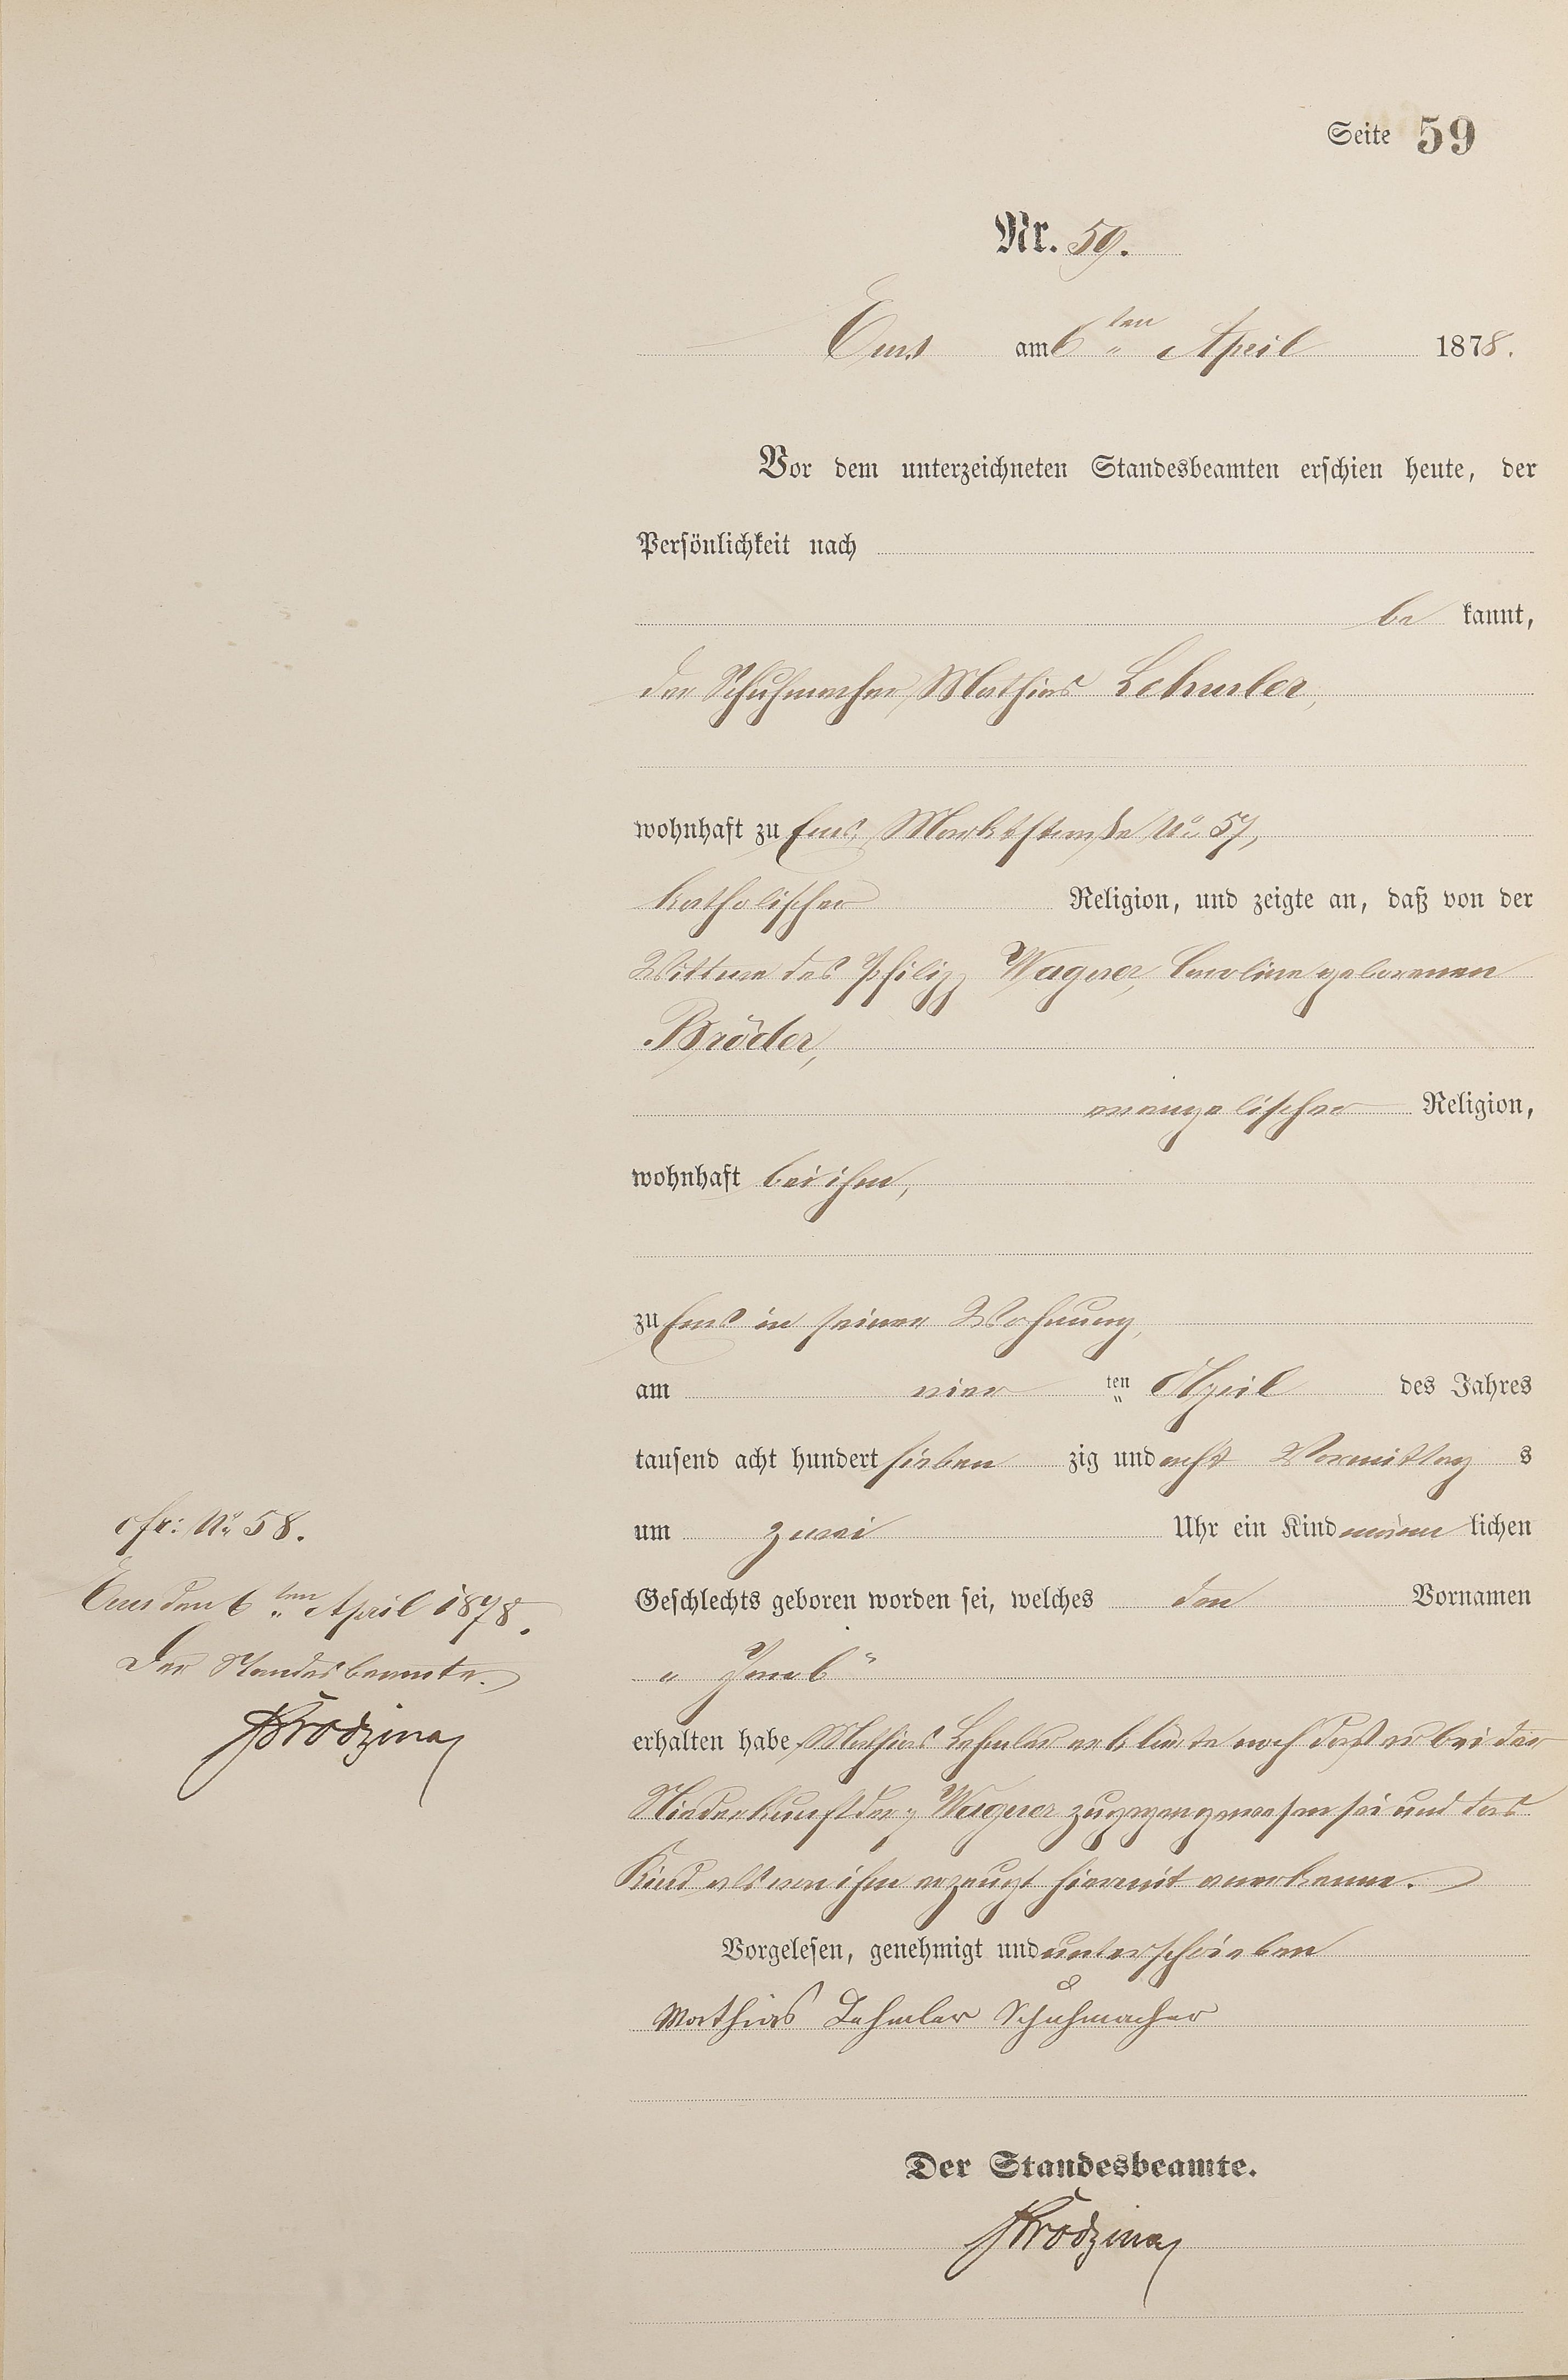 Seite 59
Nr. 59.
Ems am 6ten April 1878.
Vor dem unterzeichneten Standesbeamten erschien heute, der
Persönlichkeit nach
be kannt,
der Schuhmacher Mathias Lehmler,
wohnhaft zu Ems, Marktstraße No 57,
katholischer Religion, und zeigte an, daß von der
Wittwe des Philipp Wagner, Caroline geborenen
Bröder,
evangelischer Religion,
wohnhaft bei ihm,
zu Ems in seiner Wohnung,
am vier ten April des Jahres
tausend acht hundert sieben zig und acht Vormittag s
um zwei Uhr ein Kind männ lichen
Geschlechts geboren worden sei, welches den Vornamen
„ "
erhalten habe, Mathias Lehmler erklärte noch daß er bei der
Niederkunft der p Wagner zugegen gewesen sei und das
Kind als von ihm erzeugt hiermit anerkenne.
Vorgelesen, genehmigt und unterschrieben
Mathias Lehmler Schuhmacher
Der Standesbeamte.
cfr: No 58.
Ems den 6ten April 1878.
Der Standesbeamte.